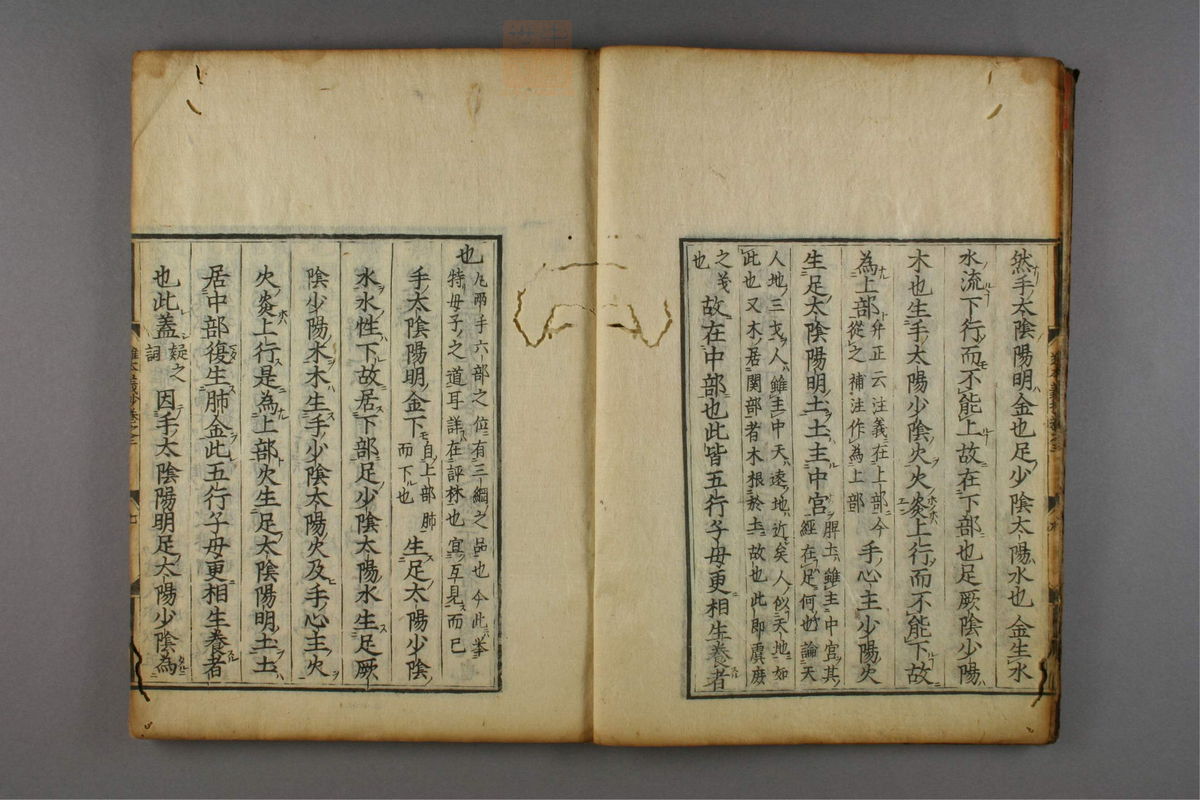 然手太陰陽明金也足少陰太陽水也金生水
水流下行而不能上故在下部也足厥陰少陽
木也生手太陽少陰火火炎上行而不能下故
為上部弁正云注義在上部今
從之補注作為上部手心主少陽火
生足太陰陽明土土主中宮脾土雖主中宮其
經在足何也論天
人地三才人雖主中天遠地近矣人似天地如
此也又木居関部者木根於土故也此即虞庶
之義
也故在中部也此皆五行子母更相生養者
也凡兩手六部之位有三綱之品也今此挙
特母子之道耳詳在評林也宜互見而已
手太陰陽明金下自上部肺
而下也生足太陽少陰
水水性下故居下部足少陰太陽水生足厥
陰少陽木木生手少陰太陽火及手心主火
火炎上行是為上部火生足太陰陽明土土
居中部復生肺金此五行子母更相生養者
也此蓋疑之
詞因手太陰陽明足太陽少陰為